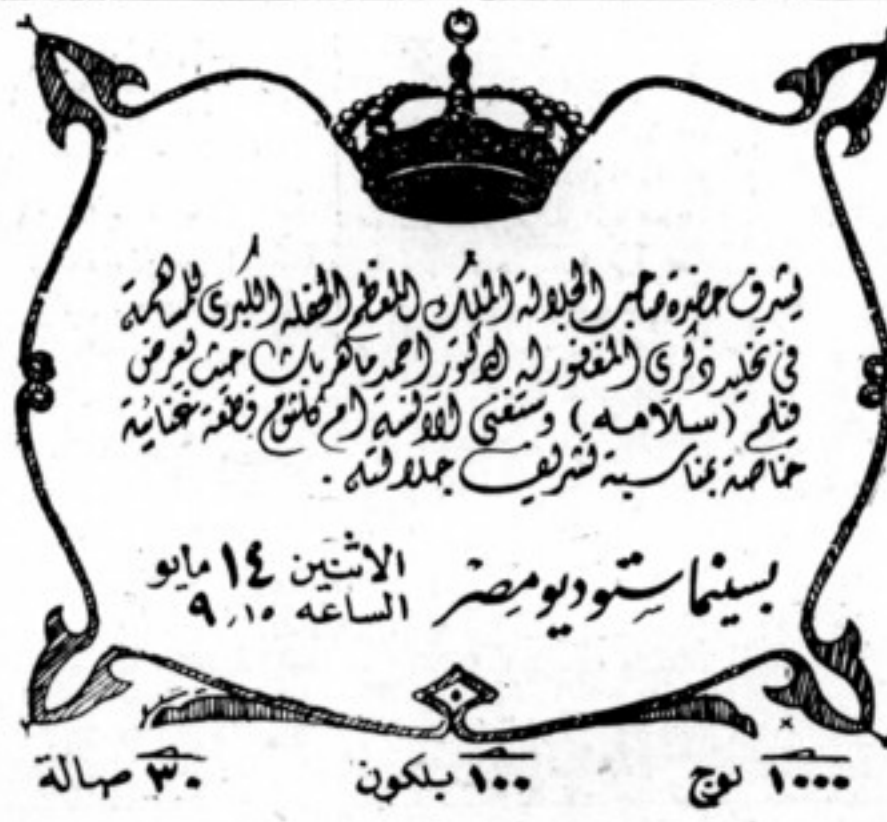 يشرف حضرة صاحب الجلالة الملك المعظم الحفله الكبرى للمساهمة
فى تخليد ذكرى المغفور له الدكتور احمد ماهر باشا حيث يعرض
فيلم (سلامه) وستغنى الآنسة ام كلثوم قطعة غنائية
خاصة بمناسبة تشريف جلالته .
بسينما ستوديو مصر
الاثنين ١٤ مايو
الساعه ٩٫١٥
١٠٠٠ لوج ١٠٠ بلكون ٣٠ صالة